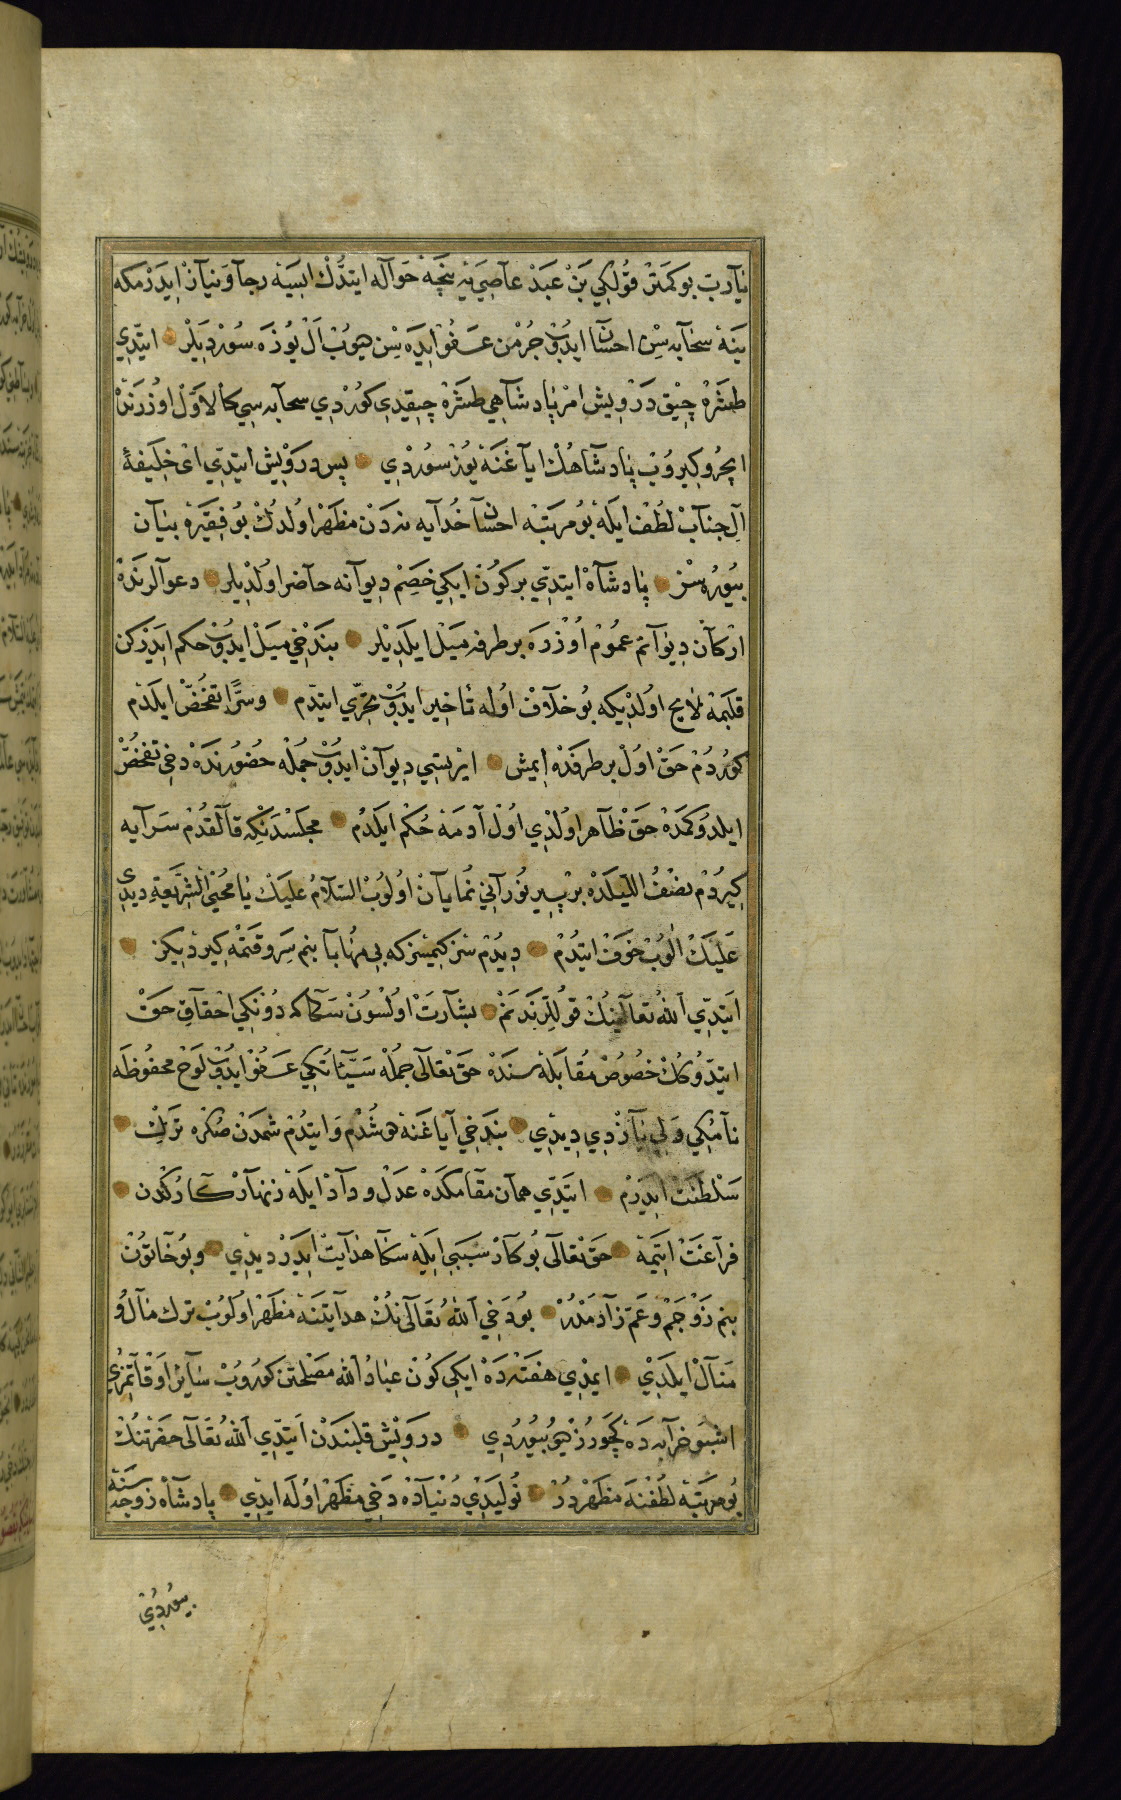 يارب بو كمتر قولكي بن عبد عاصي يه نچه حواله ايتدك ايسه رجا و نياز ايدرمكه
ينه سحابه سن احسان ايدوب جرمن عفو ايده سن ديوب ال يوزه سورديلر ايتدي
طشره چيق درويش امر پادشاهي طشره چيقدي كوردي سحابه سي كالاول اوزرندن
ايچرو كيروب پادشاهك اياغنه يوز سوردي پس درويش ايتدي اي خليفهٔ
ال جناب لطف ايله بو مرتبه احسان خدايه نه دن مظهر اولدك بو فقيره بيان
بيوره سز پادشاه ايتدي بر كون ايكي خصم ديوانه حاضر اولديلر دعوالرنده
اركان ديوانم عموم اوزره بر طرفه ميل ايلديلر بندخي ميل ايدوب حكم ايدركن
قلبمه لايح اولديكه بو خلاف اوله تاخير ايدوب تحري ايتدم و سرا تفحص ايلدم
كوردم حق اول بر طرفده ايمش ايرتسي ديوان ايدوب جمله حضورنده دخي تفحص
ايلدوكمده حق ظاهر اولدي اول آدمه حكم ايلدم مجلسدنكه قالقدم سرايه
كيردم نصف الليلده بر پير نوراني نمايان اولوب السلام عليك يا محيي الشريعة ديدي
عليك الوب خوف ايتدم ديدم سز كيمسز كه بي مهابا بنم سر وقتمه كيرديكز
ايتدي الله تعالينك قوللرندنم بشارت اولسون سكا كه دونكي احقاق حق
ايتدوكك خصوص مقابله سنده حق تعالى جمله سيئاتكي عفو ايدوب لوح محفوظه
نامكي ولي يازدي ديدي بندخي آياغنه دوشدم و ايتدم شمدن صكره ترك
سلطنت ايدرم ايتدي همان مقامكده عدل و داد ايله زنهار كاركدن
فراغت ايتمه حق تعالى بو كار سببي ايله سكا هدايت ايدر ديدي و بو خاتون
بنم زوجم و عم زادمدر بو دخي الله تعالينك هدايتنه مظهر اولوب ترك مال و
منال ايلدي ايمدي هفته ده ايكي كون عباد الله مصلحتن كوروب ساير اوقاتمزي
اشبو خرابه ده كچورز ديو بيوردي درويش قلبندن ايتدي الله تعالى حضرتنك
بو مرتبه لطفنه مظهردر نوليدي دنياده دخي مظهر اوله ايدي پادشاه زوجه سنه
بيوردي